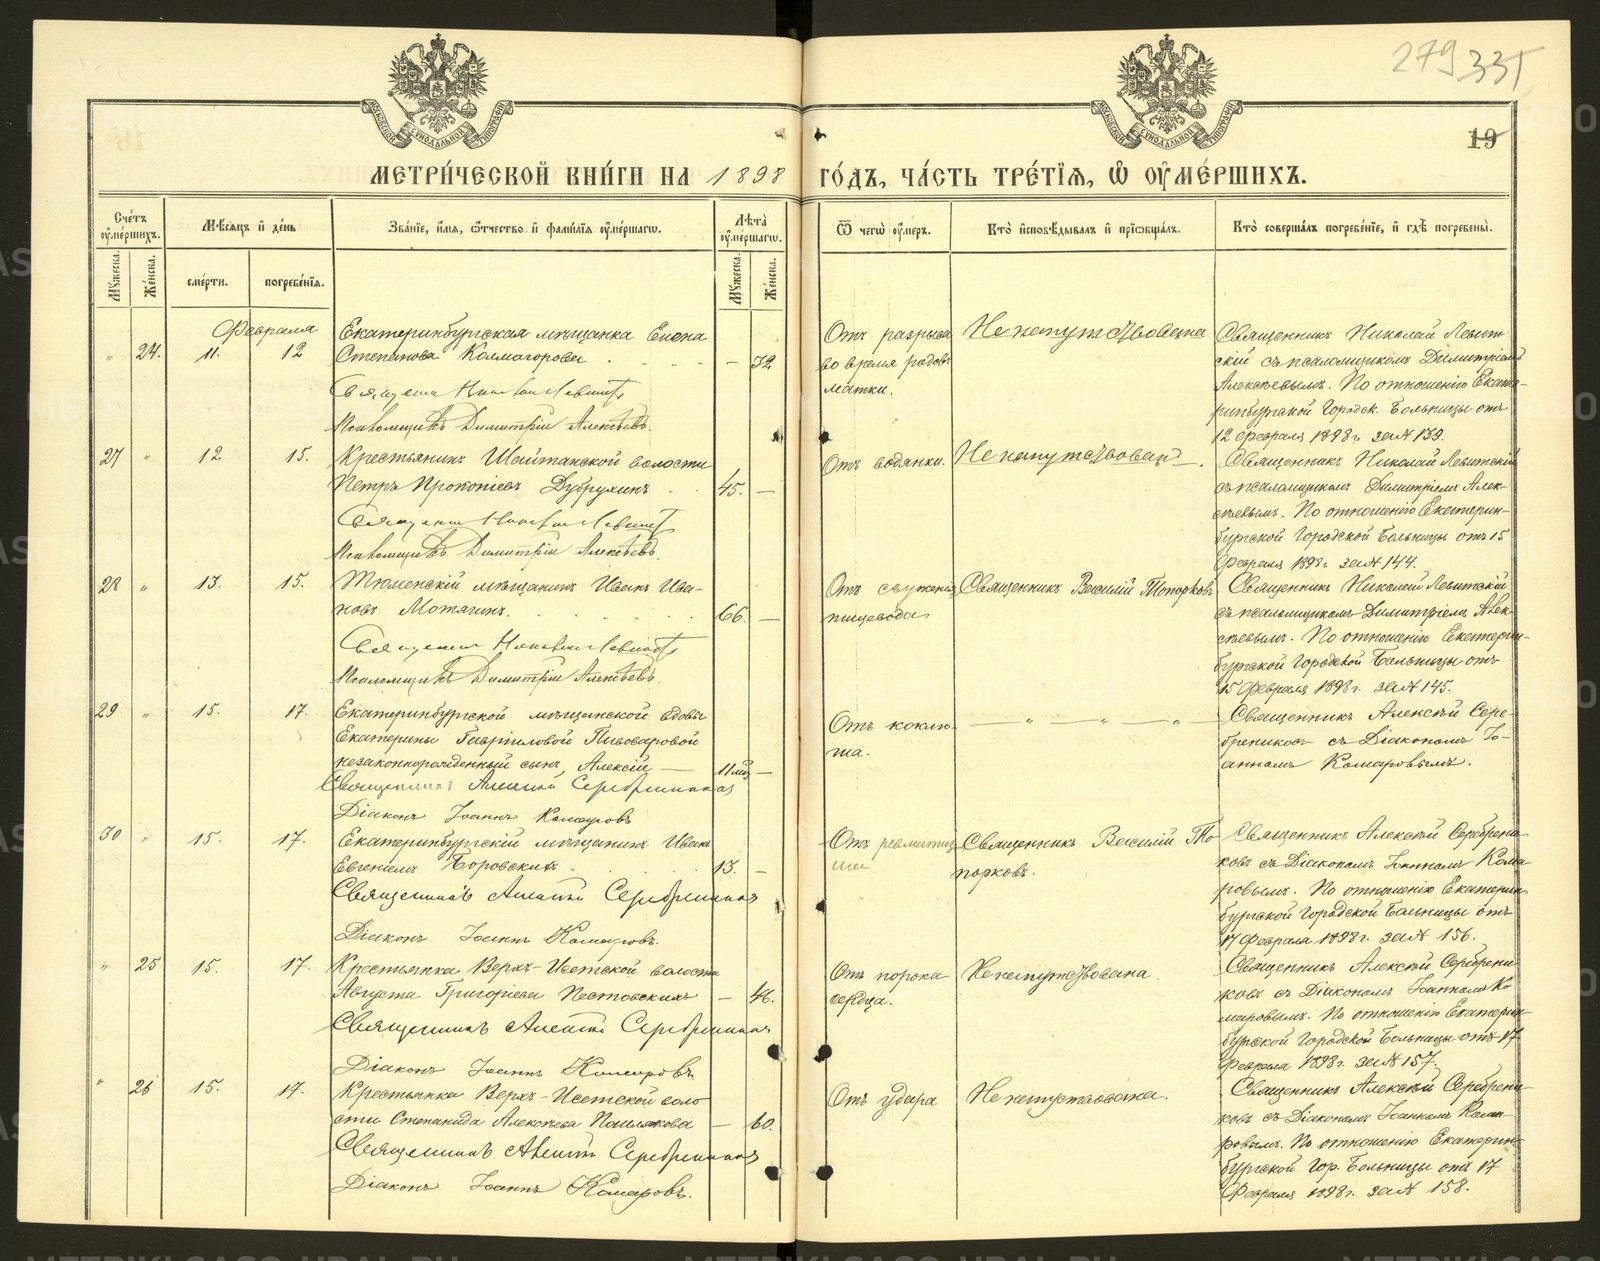 279 331
19
МЕТРИЧЕСКОЙ КНИГИ НА 1898 ГОДЪ, ЧАСТЬ ТРЕТІЯ, Ѿ ОУМЕРШИХЪ.
Счетъ оумершихъ.
Мѣсяцъ и день
Званіе, имя, ѿчество и фамилія оумершагѡ.
Лѣта оумершагѡ.
Ѿ чегѡ оумеръ.
Кто исповѣдывалъ и пріобщалъ.
Кто совершалъ погребеніе, и гдѣ погребены.
Мужеска.
Женска.
смерти.
погребенія.
Мужеска.
Женска.
Февраля
" 24. 11. 12
Екатеринбургская мѣщанка Елена
Степанова Калмогорова . — 32
Священникъ Николай Левитскій
Псаломщикъ Димитрій Алексѣевъ.
Отъ разрыва
во время родовъ
матки.
Не напутствована
Священникъ Николай Левит-
скій съ псаломщикомъ Димитріемъ
Алексѣевымъ. По отношенію Екате-
ринбургской Городск. Больницы отъ
12 февраля 1898 г. за № 139.
27 " 12 15.
Крестьянинъ Шайтанской волости
Петръ Прокопіевъ Дубрухинъ . . 45. —
Священникъ Николай Левитскій
Псаломщикъ Димитрій Алексѣевъ.
Отъ водянки.
Не напутствованъ
Священникъ Николай Левитскій
съ псаломщикомъ Димитріемъ Алек-
сѣевымъ. По отношенію Екатерин-
бургской Городской Больницы отъ 15
Февраля 1898 г. за № 144.
28 " 13. 15.
Тюменскій мѣщанинъ Иванъ Ива-
новъ Мотягинъ. 66. —
Священникъ Николай Левитскій
Псаломщикъ Димитрій Алексѣевъ.
Отъ съуженія
пищевода
Священникъ Василій Топорковъ
Священникъ Николай Левитскій
съ псаломщикомъ Димитріемъ Алек-
сѣевымъ. По отношенію Екатерин-
бургской Городской Больницы отъ
15 Февраля 1898 г. за № 145.
29 " 15. 17.
Екатеринбургской мѣщанской вдовы
Екатерины Гавріиловой Пивоваровой
незаконнорожденный сынъ, Алексій — 11 мѣс. —
Священникъ Алексѣй Серебренниковъ
Діаконъ Іоаннъ Комаровъ
Отъ коклю-
ша.
— " — " — " —
Священникъ Алексѣй Сере-
брениковъ съ Діакономъ Іо-
анномъ Комаровымъ.
30 " 15. 17.
Екатеринбургскій мѣщанинъ Иванъ
Евгеніевъ Боровскихъ . 13. —
Священникъ Алексѣй Серебренниковъ
Діаконъ Іоаннъ Комаровъ.
Отъ ревматиз-
ма
Священникъ Василій То-
порковъ.
Священникъ Алексѣй Серебрени-
ковъ съ Діакономъ Іоанномъ Кома-
ровымъ. По отношенію Екатерин-
бургской Городской Больницы отъ
17 Февраля 1898 г. за № 156.
" 25 15. 17.
Крестьянка Верхъ-Исетской волости
Августа Григоріева Пестовскихъ — 46.
Священникъ Алексѣй Серебренниковъ
Діаконъ Іоаннъ Комаровъ.
Отъ порока
сердца.
Не напутствована.
Священникъ Алексѣй Серебрени-
ковъ съ Діакономъ Іоанномъ Ко-
маровымъ. По отношенію Екатерин-
бургской Городской Больницы отъ 17
Февраля 1898 г. за № 157.
" 26 15. 17.
Крестьянка Верхъ-Исетской воло
сти Степанида Алексѣева Пошлякова — 60.
Священникъ Алексѣй Серебренниковъ
Діаконъ Іоаннъ Комаровъ.
Отъ удара
Не напутствована.
Священникъ Алексѣй Серебрени-
ковъ съ Діакономъ Іоанномъ Кома-
ровымъ. По отношенію Екатерин-
бургской Гор. Больницы отъ 17
Февраля 1898 г. за № 158.